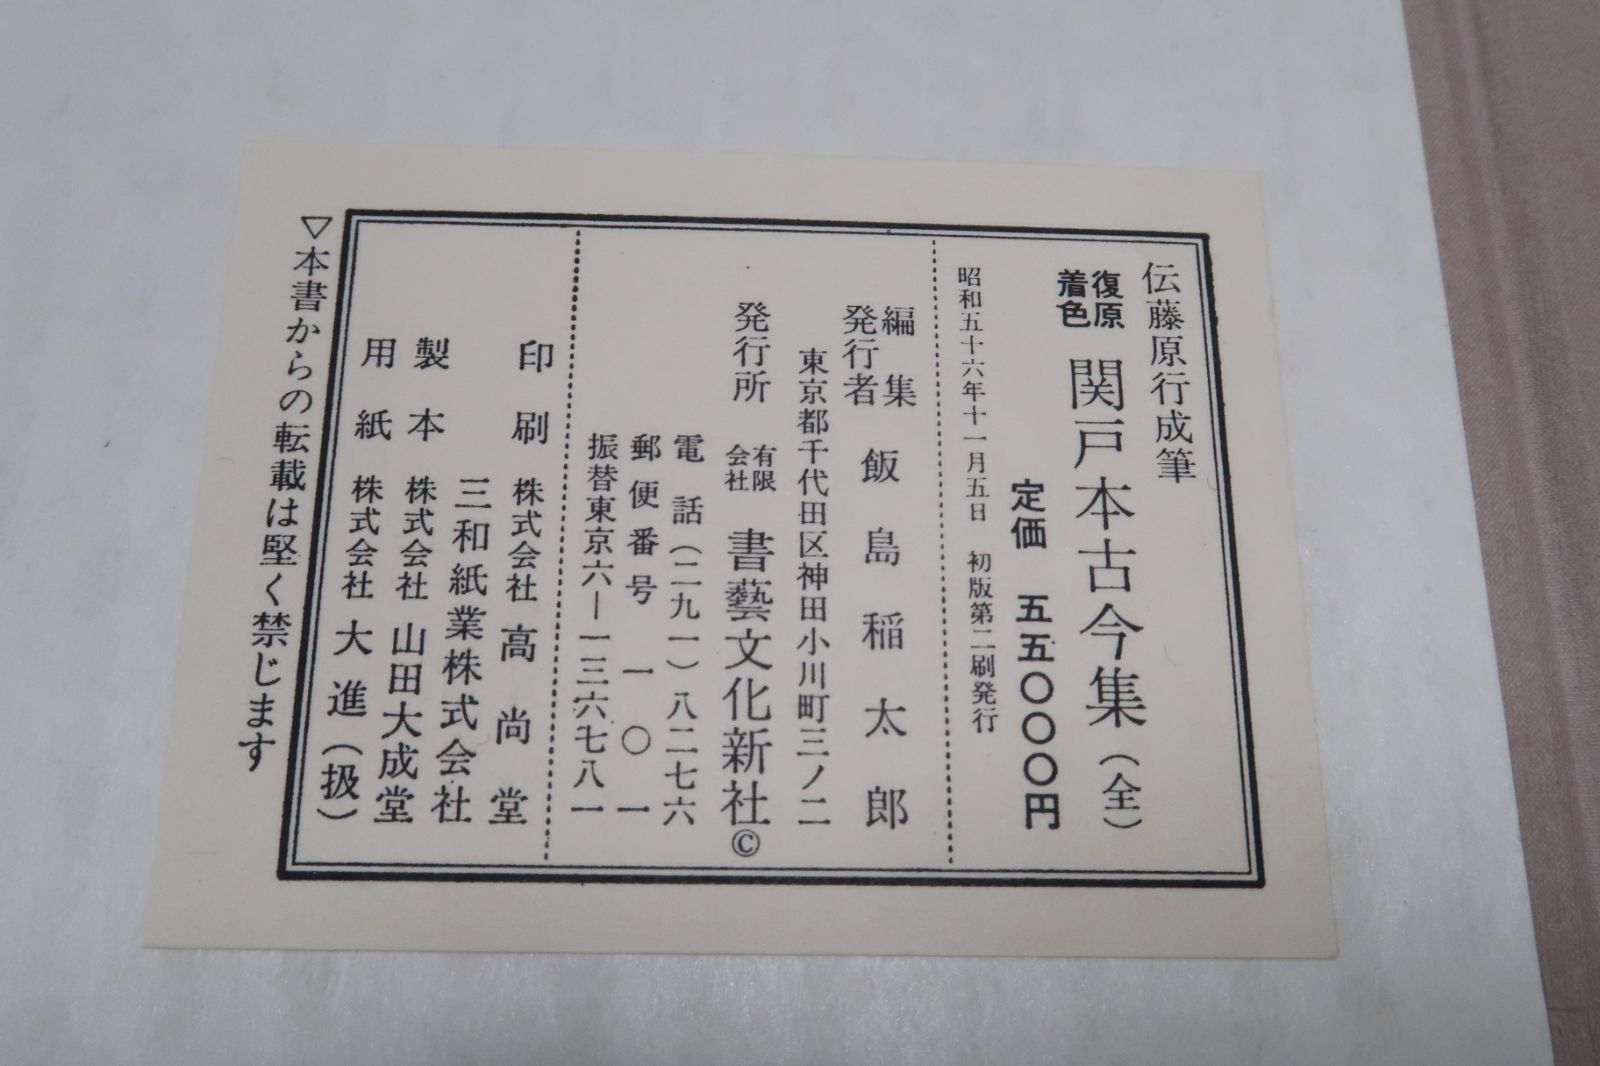 伝藤原行成筆
復原着色 関戸本古今集（全）
定価 五五〇〇〇円
昭和五十六年十一月五日 初版第二刷発行
編集発行者 飯島稲太郎
東京都千代田区神田小川町三ノ二
発行所 有限会社 書藝文化新社©
電話（二九一）八二七六
郵便番号 一〇一
振替東京六―一三六七八一
印刷 株式会社 高尚堂
三和紙業株式会社
製本 株式会社 山田大成堂
用紙 株式会社 大進（扱）
▽本書からの転載は堅く禁じます